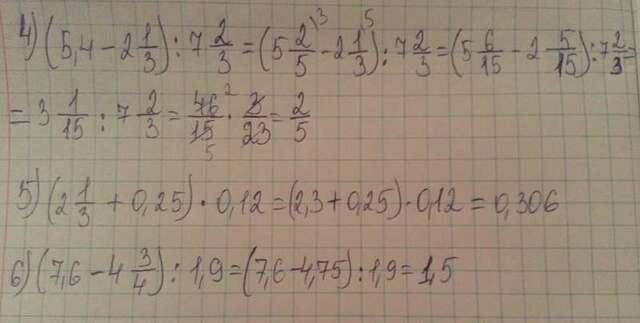 4) (5,4 - 2 1/3) : 7 2/3 = (5 2/5 \3 - 2 1/3 \5) : 7 2/3 = (5 6/15 - 2 5/15) : 7 2/3
= 3 1/15 : 7 2/3 = 46 2/15 5 · 3/23 = 2/5
5) (2 1/3 + 0,25) · 0,12 = (2,3 + 0,25) · 0,12 = 0,306
6) (7,6 - 4 3/4) : 1,9 = (7,6 - 4,75) : 1,9 = 1,5